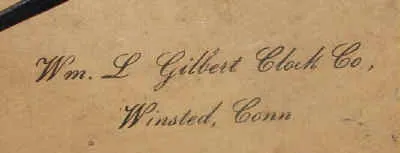 Wm. L Gilbert Clock Co,
Winsted, Conn